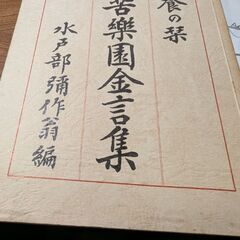 養の栞
苦樂園金言集
水戸部彌作翁編